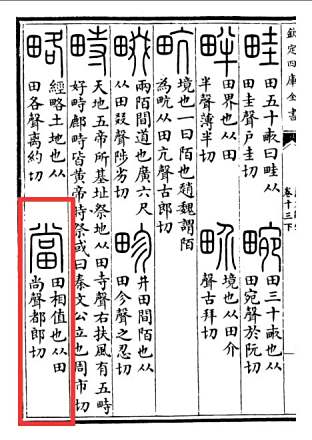 欽定四庫全書
卷十三下
畦
田五十畝曰畦从
田圭聲户圭切
畹
田三十畝也从
田宛聲於阮切
畔
田界也从田
半聲薄半切
畍
境也从田介
聲古拜切
㽘
境也一曰陌也趙魏謂陌
為㽘从田亢聲古郎切
畷
兩陌間道也廣六尺
从田叕聲陟劣切
畛
井田間陌也从
田㐱聲之忍切
畤
天地五帝所基址祭地从田寺聲右扶風有五畤
好畤鄜畤皆黃帝時祭或曰秦文公立也周市切
略
經略土地也从
田各聲离約切
當
田相值也从田
尚聲都郎切